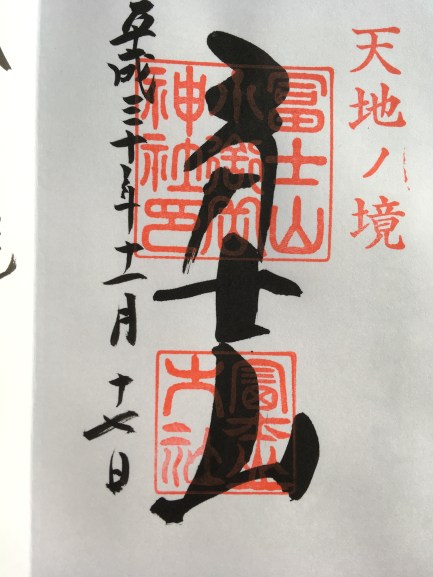 天地ノ境
冨士山
冨士山
小御岳
神社印
冨士山
大社
平成三十年十一月十七日